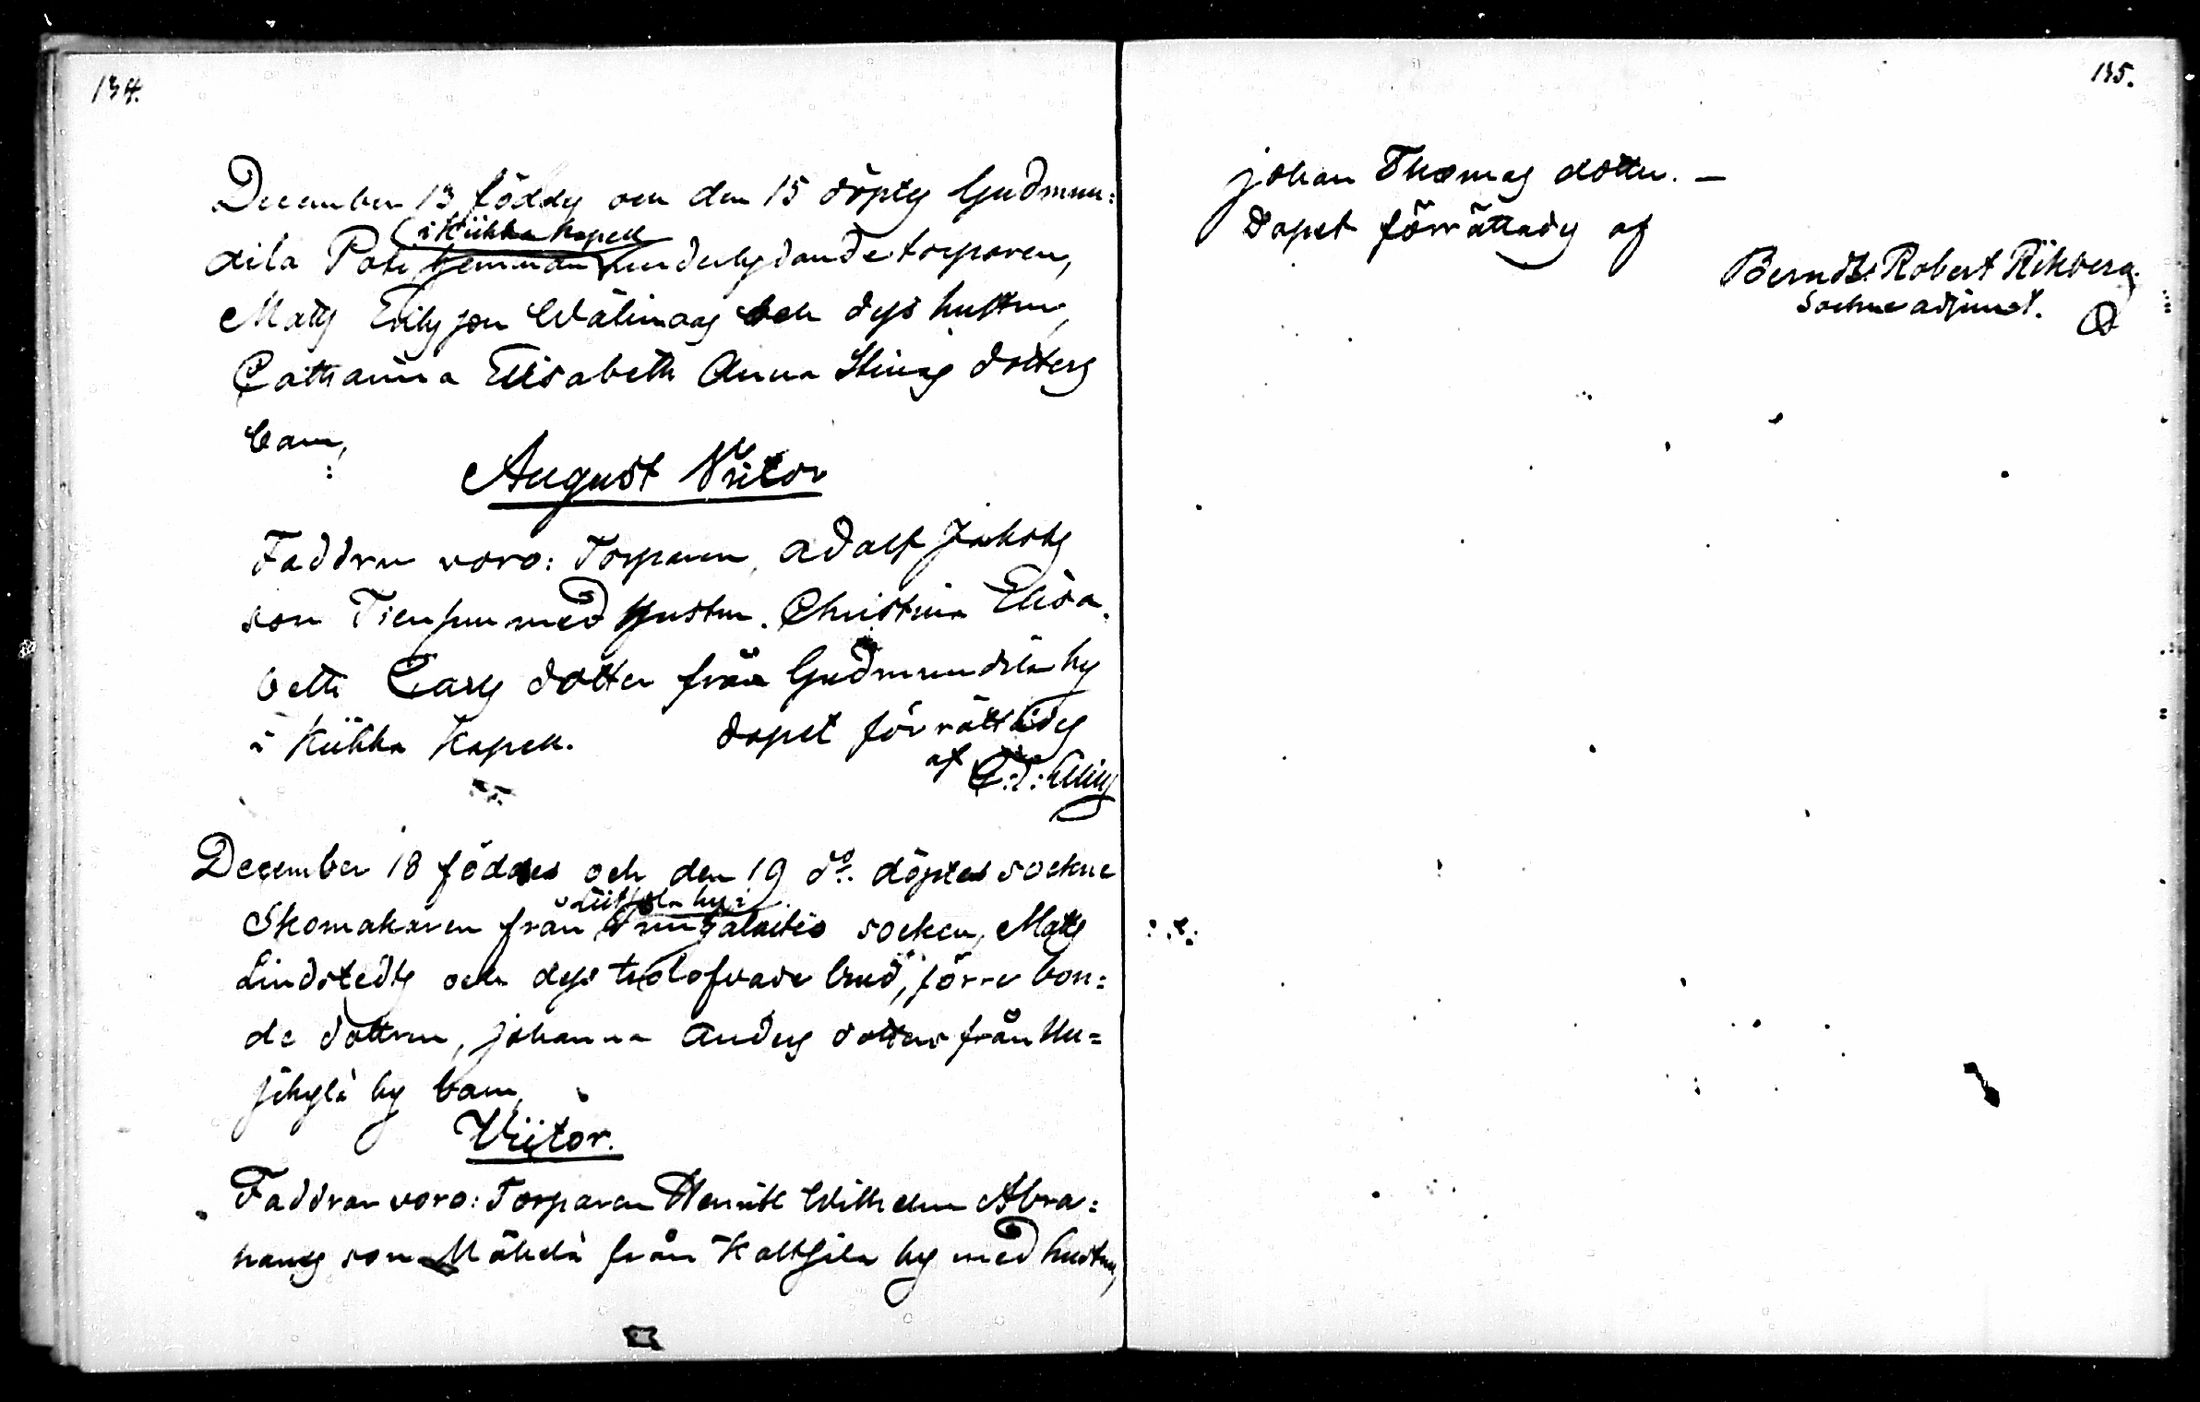 134.
December 13 föddes och den 15 döptes Gudmun:
i Kiikka Kapell
dila Pati hemman underlydande torparen,
Matts Eriksson Wälimaas och dess hustru,
Catharina Elisabeth Anna Stinas dotters
barn,
August Victor
Faddrar voro: Torparen, Adolf Jakobs
son med hustru. Christina Elisa.
beth Carls dotter från Gudmundila by
i Kiikka Kapell. Dopet förrättades
af
December 18 föddes och den 19 do. döptes sockne
by i
Skomakaren från socken, Matts
Lindstedts och dess trolofvade brud, förre bon:
de dottren, Johanna Anders dotters från Hu=
jkylä by barn,
Victor.
Faddrar voro: Torparen Henrik Wilhelm Abra:
hams son Mäkelä från by med hustru,
135.
Johan Thomas dotter. —
Dopet förrättades af
Berndt Robert Rikberg
Sockne adjunct.